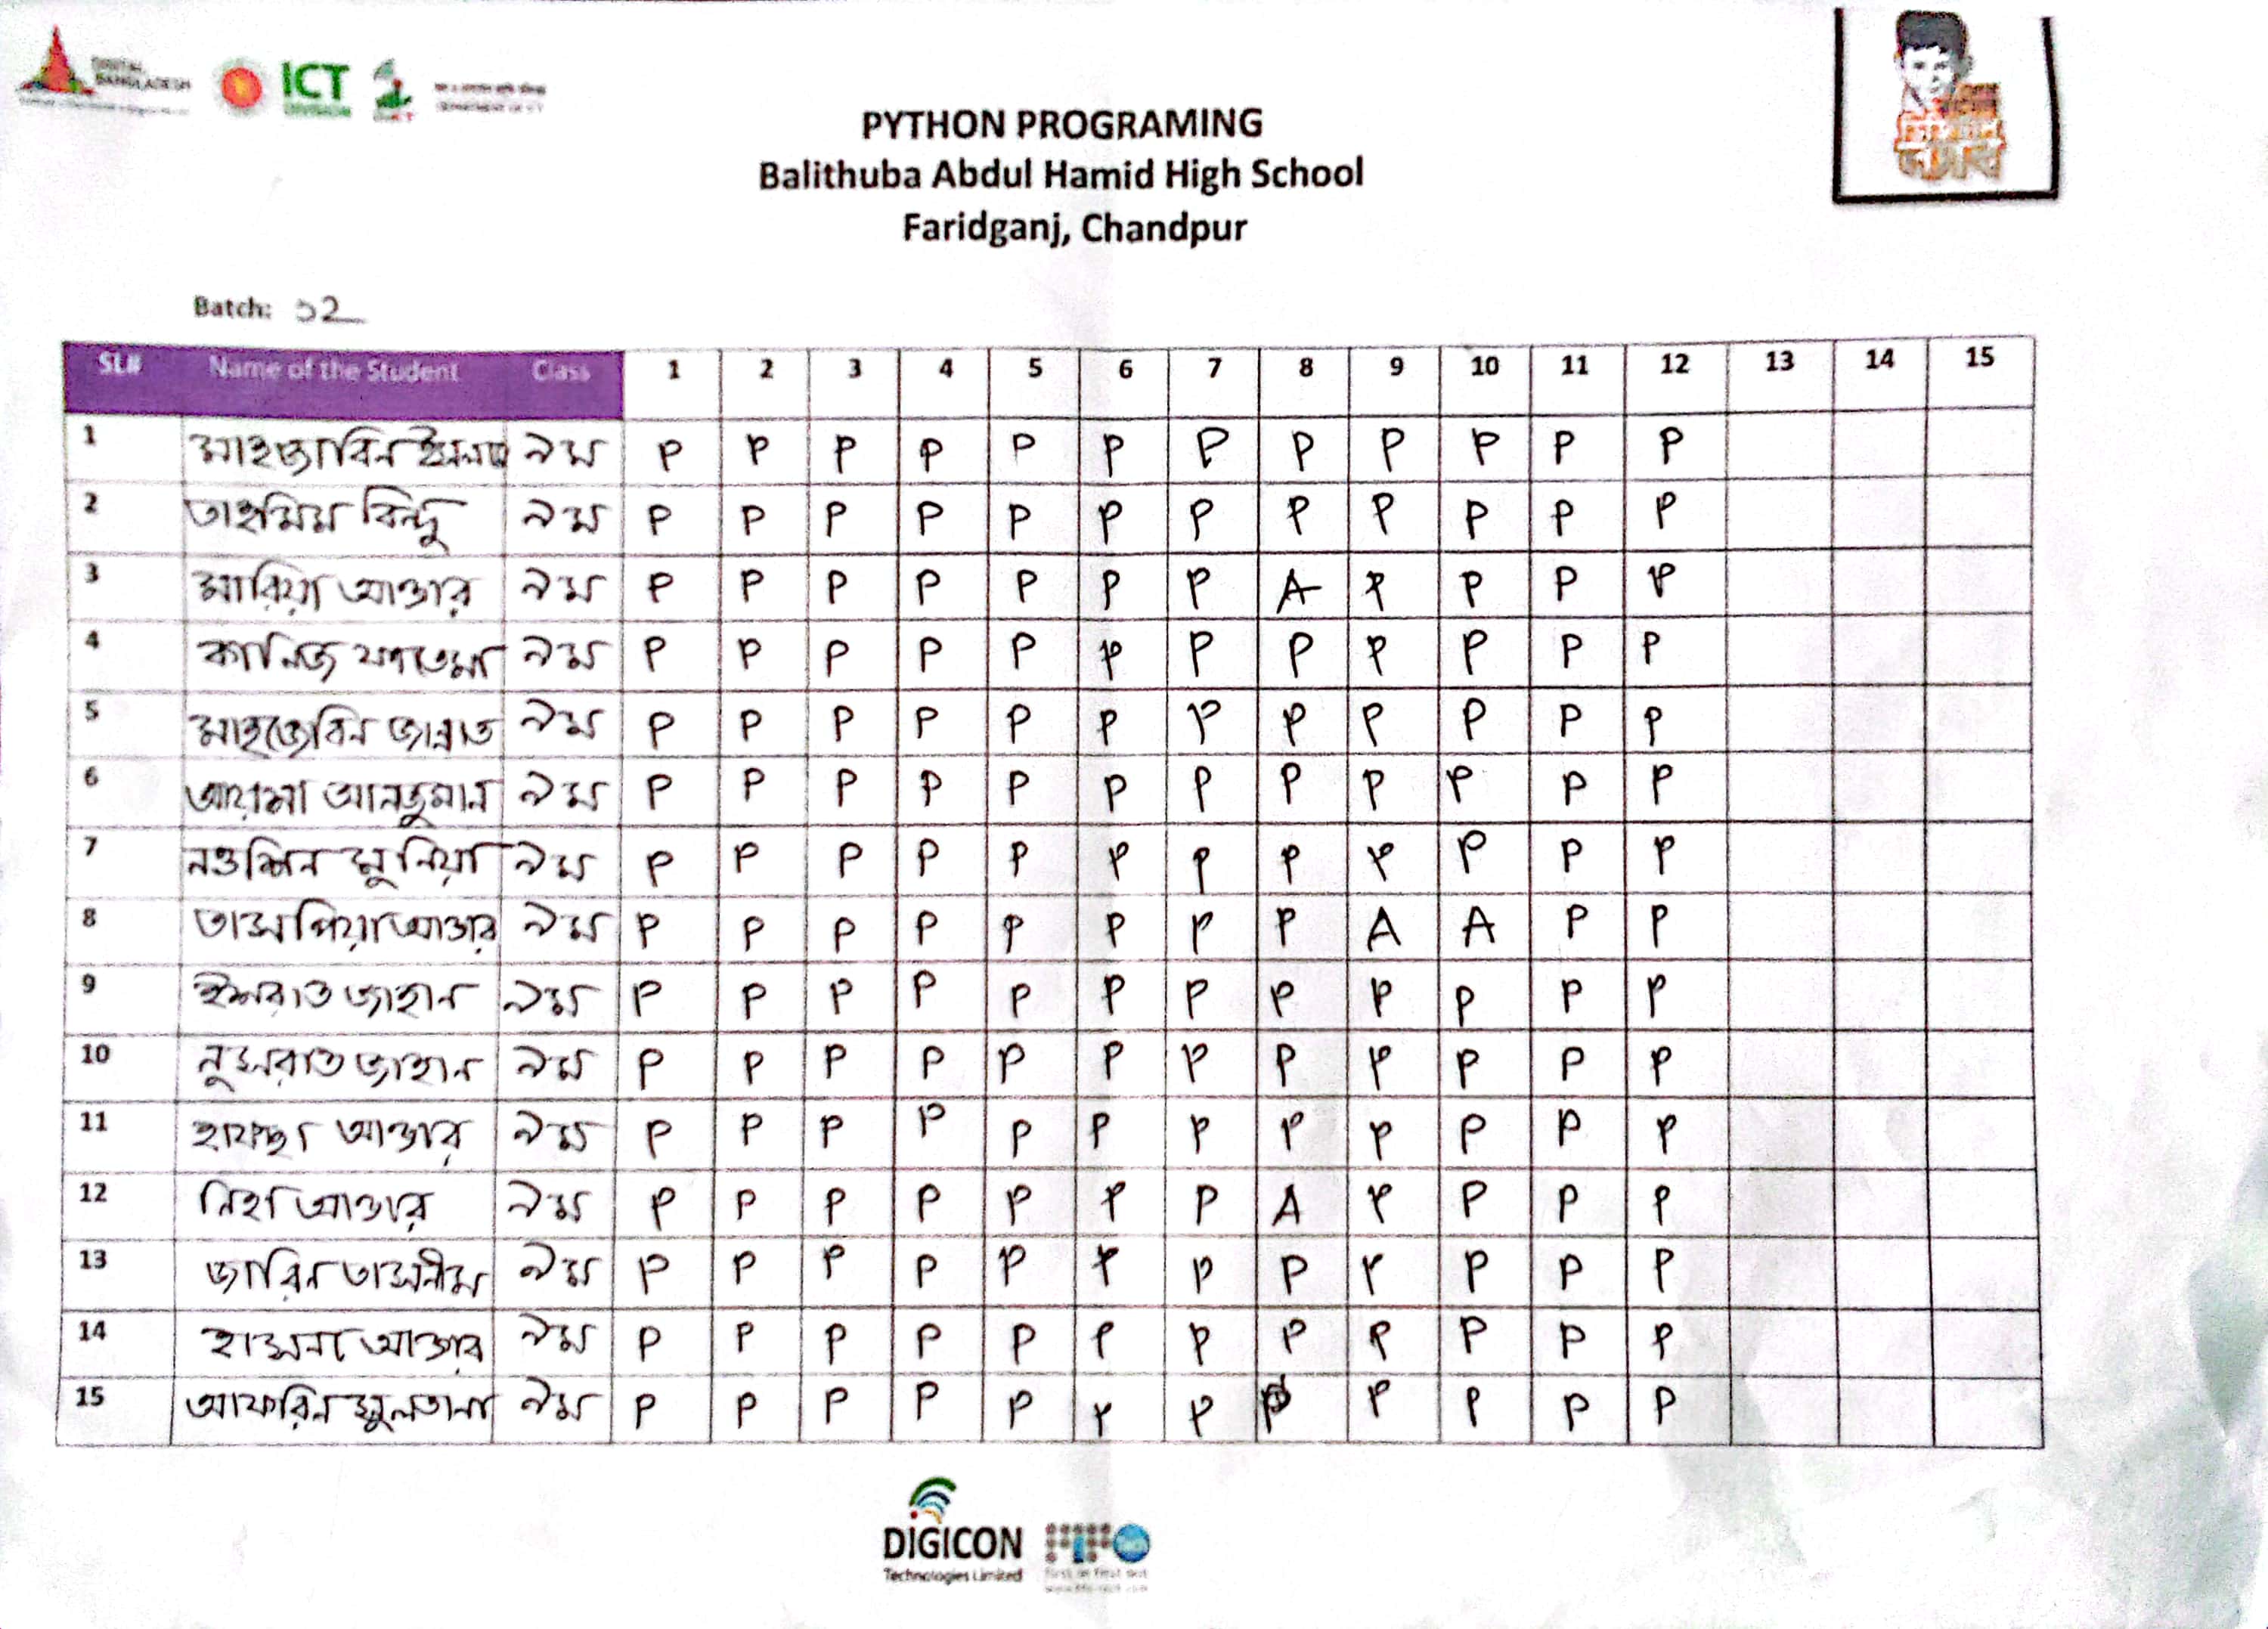 DIGITAL BANGLADESH ICT DIVISION
PYTHON PROGRAMING
Balithuba Abdul Hamid High School
Faridganj, Chandpur
Batch: ১২
SL# Name of the Student Class 1 2 3 4 5 6 7 8 9 10 11 12 13 14 15
1 মাহজাবিন ৯ম P P P P P P P P P P P P
2 তাহমিম বিন্দু ৯ম P P P P P P P P P P P P
3 মারিয়া আক্তার ৯ম P P P P P P P A P P P P
4 কানিজ ফাতেমা ৯ম P P P P P P P P P P P P
5 মাহজেবিন জান্নাত ৯ম P P P P P P P P P P P P
6 আয়শা আনজুমান ৯ম P P P P P P P P P P P P
7 নওশিন মুনিয়া ৯ম P P P P P P P P P P P P
8 তাসপিয়া আক্তার ৯ম P P P P P P P P A A P P
9 ইশরাত জাহান ৯ম P P P P P P P P P P P P
10 নুসরাত জাহান ৯ম P P P P P P P P P P P P
11 হাফছা আক্তার ৯ম P P P P P P P P P P P P
12 নিহা আক্তার ৯ম P P P P P P P A P P P P
13 জারিন তাসনীম ৯ম P P P P P P P P P P P P
14 হাসনা আক্তার ৯ম P P P P P P P P P P P P
15 আফরিন সুলতানা ৯ম P P P P P P P P P P P P
DIGICON
Technologies Limited